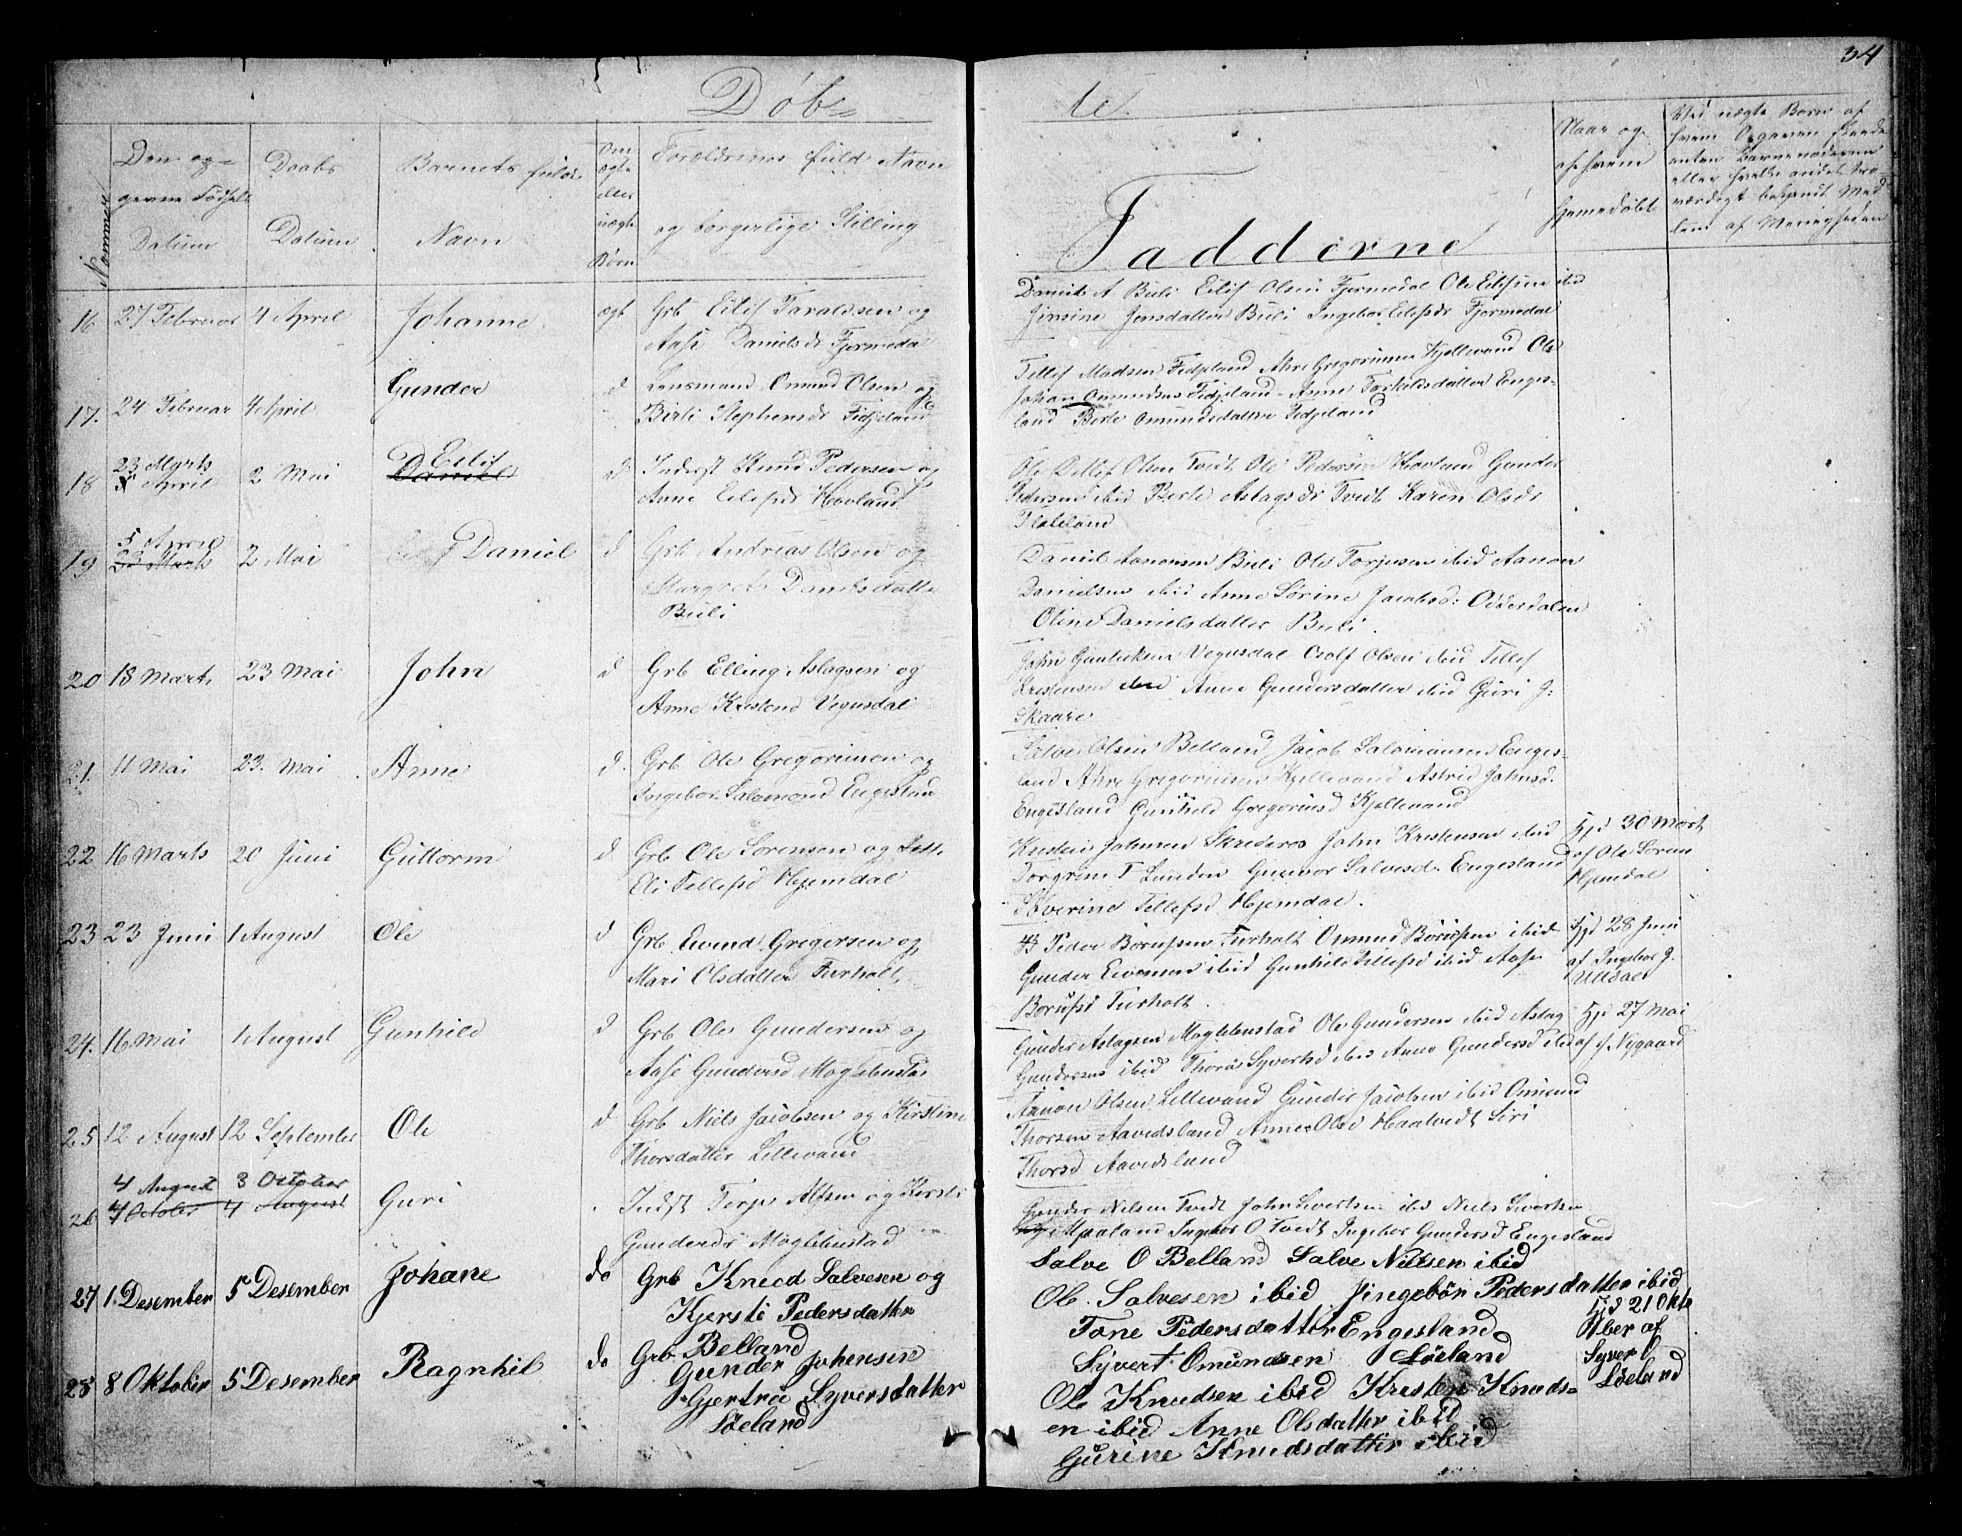 34
Døb=
te.
Nommer
Den og=
gevne Fødsels
Datum
Daabs
Datum
Barnets fulde
Navn
Om
ægte
eller
uægte
Børn
Forældrenes fuld Navn
og borgerlige Stilling
Fadderne
Naar og
af hvem
hjemedøbt
Ved uægte Børn af
hvem Opgaven skeede
enten Barnemoderen
eller hvilke andet tro-
værdigt bekjendt Med
lem af Menigheden
16 27 Februar 4 April Johanne ægt Grb Eilif Taraldsen og
Aase Danielsdr Fjermedal
Daniel A Buli Eilif Olsen Fjermedal Ole Eilifsen ibid
Jensine Jensdatter Buli Ingebor Eilefsdr Fjermedal
17. 24 Februar 4 April Gunder d Lensmand Omund Olsen og
Birti Stephensdr Fidjeland
Tellef Madsen Fidjeland Ahre Gregoriusen Kjellevand Ole
Johan Omundsen Fidjeland Anne Torkildsdatter Enges-
land Berte Omundsdatter Fidjeland
18 23 Marts 2 Mai Eilif d Inderst Knud Pedersen og
5 April Daniel Anne Eilefsdr Hovland
Ole Detlef Olsen Tvedt Ole Pedersen Hovland Gunder
Pedersen ibid Berte Aslagsdr Tvedt Karen Olsdr
Flateland
19 5 April 2 Mai Daniel d Grb Andreas Olsen og
23 Marts Margrete Danielsdatter
Buli
Daniel Aanonsen Buli Ole Torjusen ibid Aanon
Danielsen ibid Anne Sørine Jacobsd: Oiderdalen
Oline Danielsdatter Buli.
20 18 Marts 23 Mai John d Grb Elling Aslagsen og
Anne Kristensd Vegusdal
John Gunleksen Vegusdal Osolf Olsen ibid Tellef
Kristensen ibid Anne Gundersdatter ibid Guri J:
Skaare
21. 11 Mai 23. Mai Anne d. Grb Ole Gregoriusen og
Ingebor Salomonsd Engesland
Salve Olsen Belland Jacob Salomonsen Enges-
land Ahre Gregoriusen Kjellevand Astrid Johnsd.
Engesland Gunhild Gregoriusd Kjellevand
22 16 Marts 20 Juni Guttorm d Grb Ole Sørensen og
Eli Tellefsd Hjemdal
Kristen Johnsen Skrederes John Kristensen ibid
Torgrim T Lunden Gunvor Salvesd. Engesland
Severine Tellefsd Hjemdal.
Hjd 30 Mart
af Ole Søren
Hjemdal
23 23 Juni 1 August Ole d Grb Evend Gregersen og
Mari Olsdatter Furholt
Peder Børufsen Furholt Omund Børufsen ibid
Gunder Evensen ibid Gunhild Tellefsd ibid Aase
Børufsd Furholt.
Hjd 28 Juni
af Ingebor J.
Uldsal
24. 16 Mai 1 August Gunhild d Grb Ole Gundersen og
Aase Gundersd Moglebustad
Gunder Aslagsen Moglebustad Ole Gundersen ibid Aslag
Gundersen ibid Thore Syvertsd ibid Anne Gundersd ibid
Hjd 27 Mai
af J. Nygaard
25 12 August 12 September Ole d Grb Niels Jacobsen og Kirstine
Thorsdatter Lillevand
Aanon Olsen Lillevand Gunder Jacobsen ibid Omund
Thorsen Aavedsland Anne Olsd Haatvedt Siri
Thorsd Aavedsland
26 4 August 3 October Guri Indst Terje Altsen og Kersti
4 October 4 August Gundersdr Moglebustad
Gunder Nilsen Tvedt John Sivertsen ibd Niels Sivertsen
Mjaaland Ingebor O Tvedt Ingebor Gundersd Engesland
27 1. Desember 5 Desember Johane do Grb Knud Salvesen og
Kjersti Pedersdatter
Belland
Salve O Belland Salve Nielsen ibid
Ole Salvesen ibid Jingebør Pedersdatter ibid
Tone Pedersdatter Engesland
28 8 Oktober 5 Desember Ragnhil do Grb Gunder Johensen
Gjertru Syversdatter
Løeland
Syvert Omundsen Løeland
Ole Knudsen ibid Kristen Knuds=
en ibid Anne Olsdatter ibid
Gurine Knudsdatter ibid
Hjd 21 Okto
ber af
Syver O
Løeland